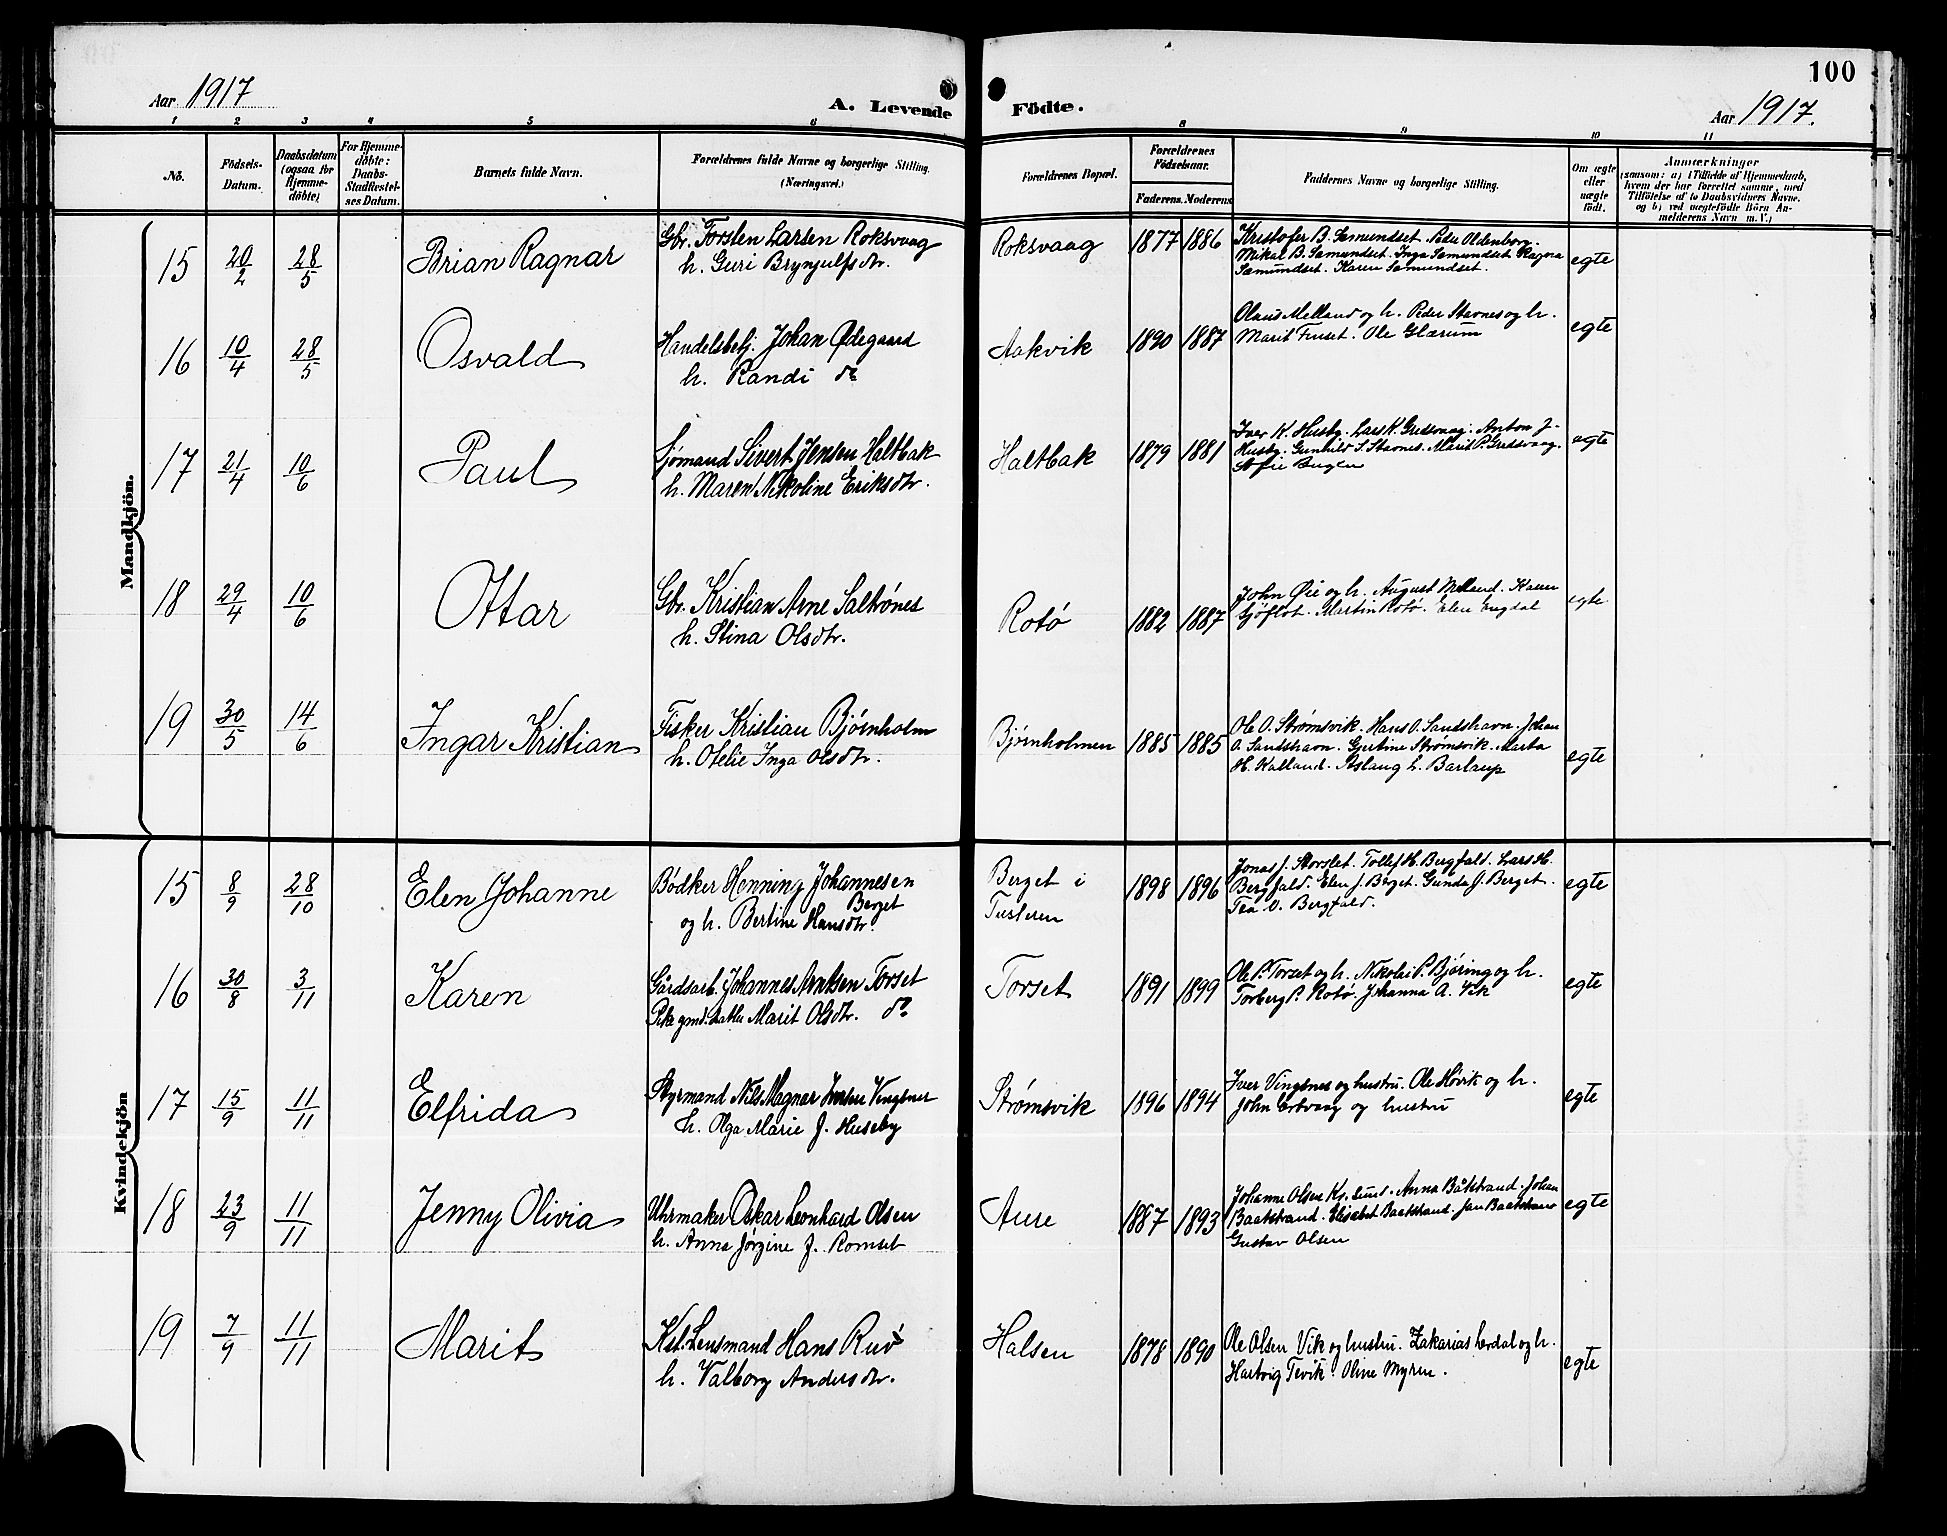 100
Aar 1917
A. Levende
Födte.
Aar 1917.
1 2 3 4 5 6 8 9 10 11
No.
Födsels-
Datum.
Daabsdatum
(ogsaa for
Hjemme-
döbte)
For Hjemme-
döbte:
Daabs-
Stadfæstel-
ses Datum.
Barnets fulde Navn.
Forældrenes fulde Navne og borgerlige Stilling.
(Næringsvei.)
Forældrenes Bopæl.
Forældrenes
Födselsaar.
Faderens. Moderens.
Faddernes Navne og borgerlige Stilling.
Om ægte
eller
uægte
födt.
Anmærkninger
(saasom: a) i Tilfælde af Hjemmedaab,
hvem der har forrettet samme, med
Tilföielse af to Daabsvidners Navne.
og b) ved uægtefödte Börn An-
melderens Navn m. V.)
Mandkjön.
15 20/2 28/5 Brian Ragnar
Gbr. Torsten Larsen Roksvaag
h. Guri Brynjulfsdtr.
Roksvaag 1877 1886
Kristofer B. Sæmundset. Peder Oldenborg.
Mikal B. Sæmundset. Inga Sæmundset. Ragna
Sæmundset. Karen Sæmundset.
egte
16 10/4 28/5 Osvald
Handelsbetj. Johan Ødegaard
h. Randi do
Aakvik 1890 1887
Olaus Melland og h. Peder Stavnes og h.
Marit Furset. Ole Glærum
egte
17 21/4 10/6 Paul
Sjømand Sivert Jensen Haltbak
h. Maren Nikoline Eriksdtr.
Haltbak 1879 1881
Iver K. Husby. Lars K. Gredsvaag. Anton J.
Husby. Gunhild S. Stavnes. Marit P. Gredsvaag.
Sofie
egte
18 29/4 10/6 Ottar
Gbr. Kristian Arne Saltrönes
h. Stina Olsdtr.
Rotø 1882 1887
John Øie og h. August Melland. Karen
Gjøflot. Martin Rotø. Elen Engdal
egte
19 30/5 14/6 Ingar Kristian
Fisker Kristian Bjørnholm
h. Otelie Inga Olsdtr.
Bjørnholmen 1885 1885
Ole O. Strømsvik. Hans O. Sandshavn. Johan
O. Sandshavn. Gjertine Strømsvik. Marta
H. Kalland. Aslaug L. Bartrup
egte
Kvindekjön
15 8/9 28/10 Elen Johanne
Bødker Henning Johannesen
Berget
og h. Bertine Hansdtr.
Berget i
Tusteren
1898 1896
Jonas J. Storslet. Tollef H. Bergfald. Lars H.
Bergfald. Elen J. Berget. Gunda J. Berget.
Tea O. Bergfald.
egte
16 30/8 3/11 Karen
Gårdsarb. Johannes Arntsen Torset
Marit Olsdtr. do
Torset 1891 1899
Ole P. Torset og h. Nikolai P. Bjøring og h.
Torberg P. Rotø. Johanna A. Vik
egte
17 15/9 11/11 Elfrida
Styrmand Nils Magnar Iversen Vingsnes
h. Olga Marie f. Huseby
Strømsvik 1896 1894
Iver Vingsnes og hustru. Ole Høvik og h.
John Ertvaag og hustru
egte
18 23/9 11/11 Jenny Olivia
Uhrmaker Oskar Leonhard Olsen
h. Anna Jørgine f. Romset
Aure 1887 1893
Johanne Olsen Kr. sund. Anna Båtstrand. Johan
Baatstrand. Elisabet Baatstrand. Jan Baatstrand
Gustav Olsen
egte
19 7/9 11/11 Marit
Kst. Lensmand Hans Ruø
h. Valborg Andersdtr.
Halsen 1878 1890
Ole Olsen Vik og hustru. Zakarias Lerdal og h.
Hartvig Tevik. Oline Myren.
egte